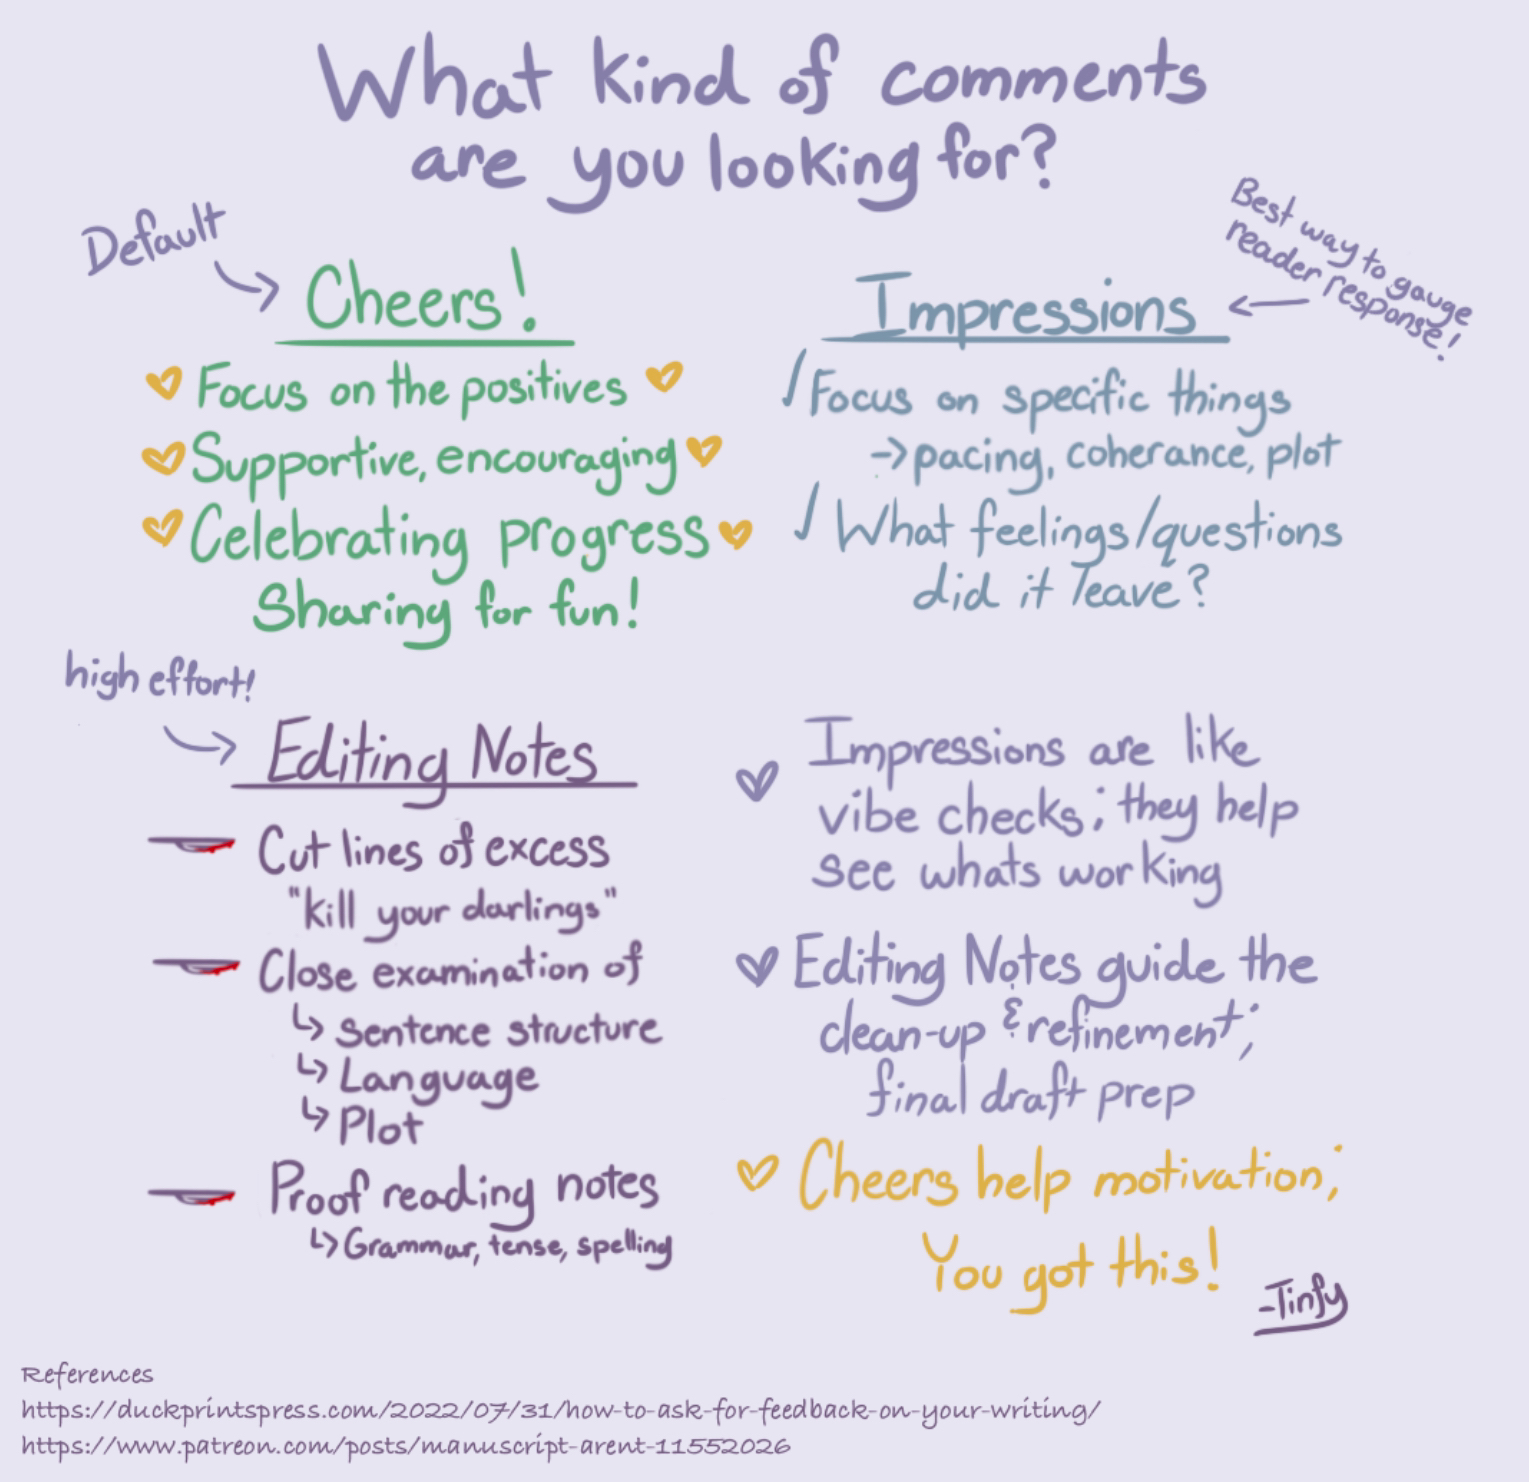 What kind of comments
are you looking for?
Default
Cheers!
Focus on the positives
Supportive, encouraging
Celebrating progress
Sharing for fun!
Best way to gauge
reader response!
Impressions
Focus on specific things
→ pacing, coherance, plot
What feelings/questions
did it leave?
high effort!
Editing Notes
Cut lines of excess
"kill your darlings"
Close examination of
↳ Sentence structure
↳ Language
↳ Plot
Proof reading notes
↳ Grammar, tense, spelling
Impressions are like
vibe checks; they help
see whats working
Editing Notes guide the
clean-up & refinement;
final draft prep
Cheers help motivation;
You got this!
-Tinfy
References
https://duckprintspress.com/2022/07/31/how-to-ask-for-feedback-on-your-writing/
https://www.patreon.com/posts/manuscript-arent-11552026